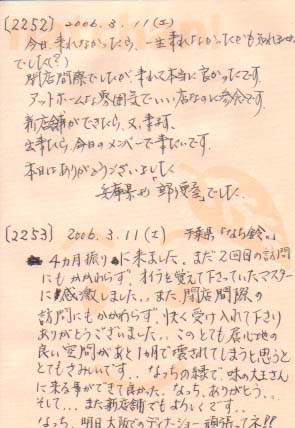 〔2252〕 2006.3.11(土)
今日、来れなかったら、一生来れなかったかも知れません
でした(?)
閉店間際でしたが、来れて本当に良かったです。
アットホームな雰囲気でいい店なのに残念です。
新店舗ができたら、又、来ます。
出来たら、今日のメンバーで来たいです。
本日はありがとうございました。
兵庫県より でした。
〔2253〕 2006.3.11(土) 千葉県「なら鈴。」
4ヵ月振りに来ました。まだ2回目の訪問
にもかかわらず、オイラを覚えて下さっていたマスター
に感激しました。。また、閉店間際の
訪問にもかかわらず、快く受け入れて下さり
ありがとうございました。。この とても居心地の
良い空間があと1ヵ月で壊されてしまうと思うと
とてもさみしいです。。なっちの縁で、味の大王さん
に来る事ができて良かった。なっち、ありがとう。。
そして...また新店舗でもよろしくです。。
なっち、明日大阪でのディナーショー頑張ってネ!!